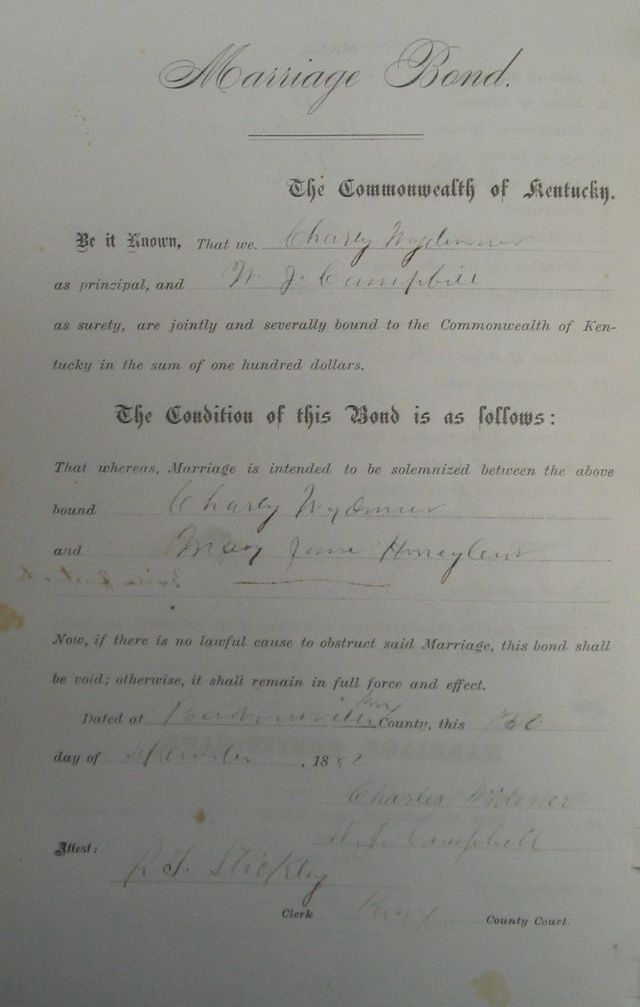 Marriage Bond.
The Commonwealth of Kentucky.
Be it Known, That we, Charly Wydinner
as principal, and W. J. Campbill
as surety, are jointly and severally bound to the Commonwealth of Ken-
tucky in the sum of one hundred dollars.
The Condition of this Bond is as follows:
That whereas, Marriage is intended to be solemnized between the above
bound Charly Wydinner
and Mary Jane Honeyleur
Now, if there is no lawful cause to obstruct said Marriage, this bond shall
be void; otherwise, it shall remain in full force and effect.
Dated at Barbourville Knox County, this
day of September, 188
Charles Widener
W. J. Campbell
Attest:
R. F. Stickley
Clerk Knox County Court.